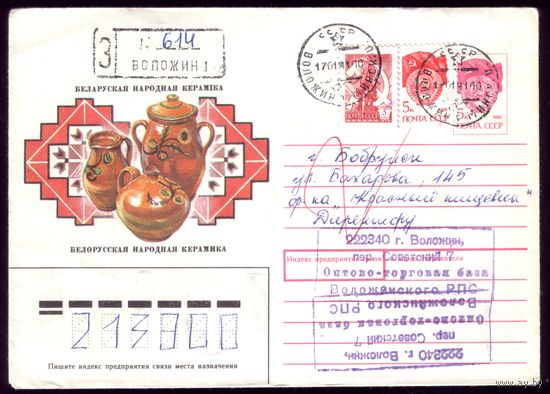 З
614
ВОЛОЖИН 1
БЕЛАРУСКАЯ НАРОДНАЯ КЕРАМІКА
БЕЛОРУССКАЯ НАРОДНАЯ КЕРАМИКА
СССР
ВОЛОЖИН
МИНСК
ПОЧТА СССР
5к
ПОЧТА СССР
ПОЧТА СССР
1988
г. Бобруйск
ул. Бахарова, 145
ф-ка "Красный пищевик"
Директору
222340 г. Воложин,
пер. Советский 7
Индекс предприятия
Оптово-торговая база
Воложинского РПС
222340 г. Воложин,
пер. Советский 7
Оптово-торговая база
Воложинского РПС
213800
Пишите индекс предприятия связи места назначения
www.ay.by